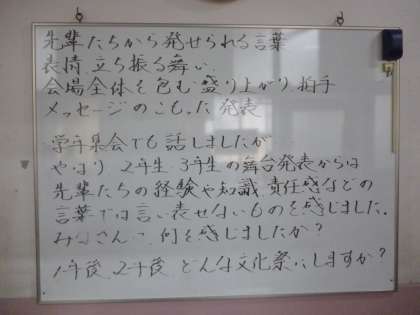 先輩たちから発せられる言葉
表情 立ち振る舞い
会場全体を包む 盛り上がり 拍手
メッセージのこもった 発表
学年集会でも話しましたが
やはり、2年生、3年生の舞台発表からは
先輩たちの経験や知識 責任感などの
言葉では言い表せないものを感じました。
みなさんは、何を感じましたか?
1年後、2年後、どんな文化祭にしますか?